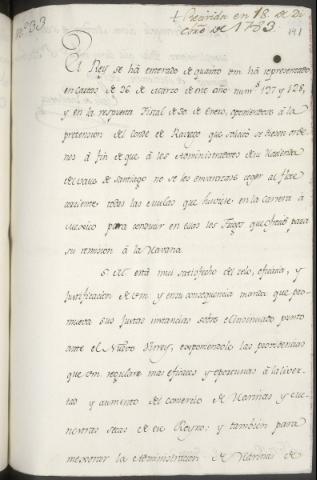 N.º 233
+ Recivida en 18. de Di
cre de 1783. 141
El Rey se há enterado de quanto Vm. há representado
en cartas de 26 de Marzo de este año num.s 127 y 128,
y en la respuesta Fiscal de 30 de Enero, oponiendose á la
pretension del Conde de que solicitó se diesen orde
nes á fin de que á los Administradores de su Hacienda
del Valle de Santiago no se les embarazase coger al flete
corriente todas las Mulas que huviese en la carrera á
Mexico para conducir en ellas los Trigos que para
su remision á la Havana.
S. M. está mui satisfecho del zelo, eficacia, y
justificacion de Vm. y en su consequencia manda que pro
mueva sus justas instancias sobre el insinuado punto
ante el Nuevo Virrey, exponiendole las providencias
que Vm. regulare mas eficaces y oportunas á la liver
tad y aumento del comercio de Harinas y Me
nestras secas de ese Reyno: y tambien para
mejorar la Administracion de Harinas de